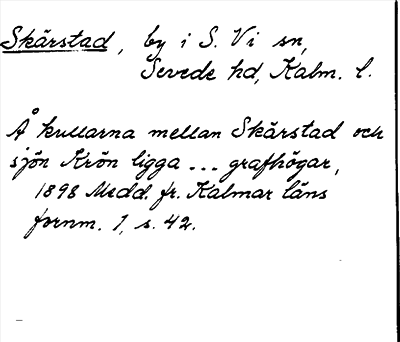 Skärstad, by i S. Vi sn,
Sevede hd, Kalm. l.
Å kullarna mellan Skärstad och
sjön Krön ligga ... grafhögar,
1898 Medd. fr. Kalmar läns
fornm. 1, s. 42.